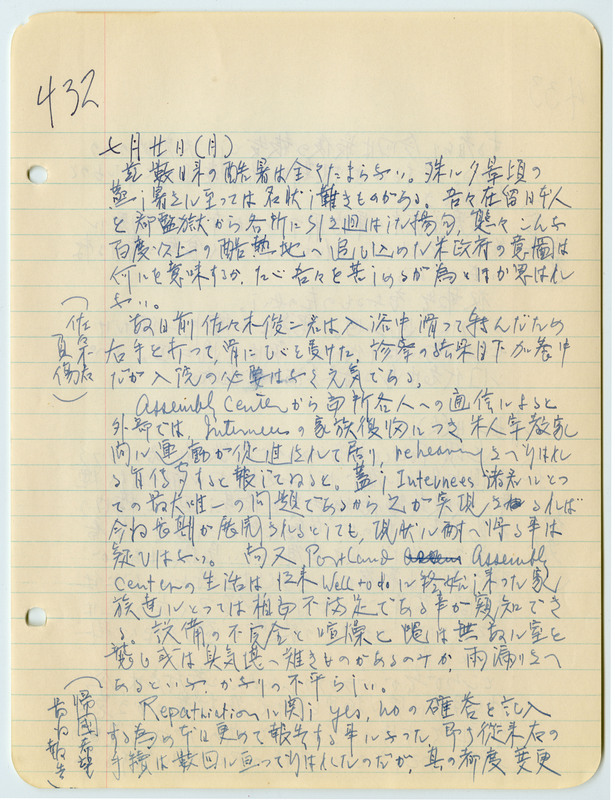 432
七月廿日(月)
茲数日来の酷暑は全くたまらない。殊に夕景頃の
蒸し暑さに至っては名状し難きものがある。吾々在留日本人
を 監獄から各所に引き廻はした揚句、態々こんな
百度以上の酷熱地へ追ひ込めた米政府の意図は
何にを意味するか、たゞ吾々を苦しめるが為とほか思はれ
ない。
数日前佐々木俊二君は入浴中滑って転んだため
右手を折って、骨にひびを受けた。診察の結果目下加養中
だが入院の必要はなく元気である。
(佐々木君負傷)
Assembly Centerから当所各人への通信によると
外部では、Interneesの家族復帰につき米人宗教家
間に運動が促進されて居り、rehearingさへ行はれ
る有様すると報じてゐると。蓋しInternees諸君にとっ
ての最大唯一の問題であるから之が実現さるれば
今ね長期が展開されるとしても、現状に耐へ得る事は
疑ひはない。尚又Portland Assembly
Centerの生活は従来Well to doに終始し来った家
族達にとっては相当不満足である事が窺知でき
る。設備の不完全と喧燥と 蝿は無数に室を
襲ひ或は臭気堪へ難きものがあるのみか、雨漏りさへ
あるといふ、かなりの不平らしい。
Repatriationに関しyes, noの確答を記入
する為め本日更めて報告する事になった。即ち従来右の
手続は数回に亘って行はれたのだが、其の都度変更
(帰国希望 報告)